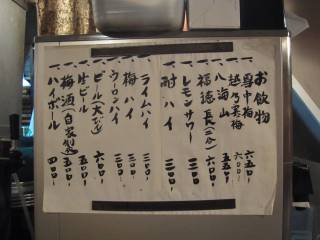 お飲物
一、雪中梅 六五〇-
一、越乃寒梅 六〇〇-
一、八海山 五五〇-
一、福徳長(二合) 六〇〇-
一、レモンサワー 三〇〇-
一、酎ハイ 三〇〇-
一、ライムハイ 三〇〇-
一、梅ハイ 三〇〇-
一、ウーロンハイ 三〇〇-
一、ビール(大ビン) 六〇〇-
一、生ビール 五〇〇-
一、梅酒(自家製) 五〇〇-
一、ハイボール 四〇〇-